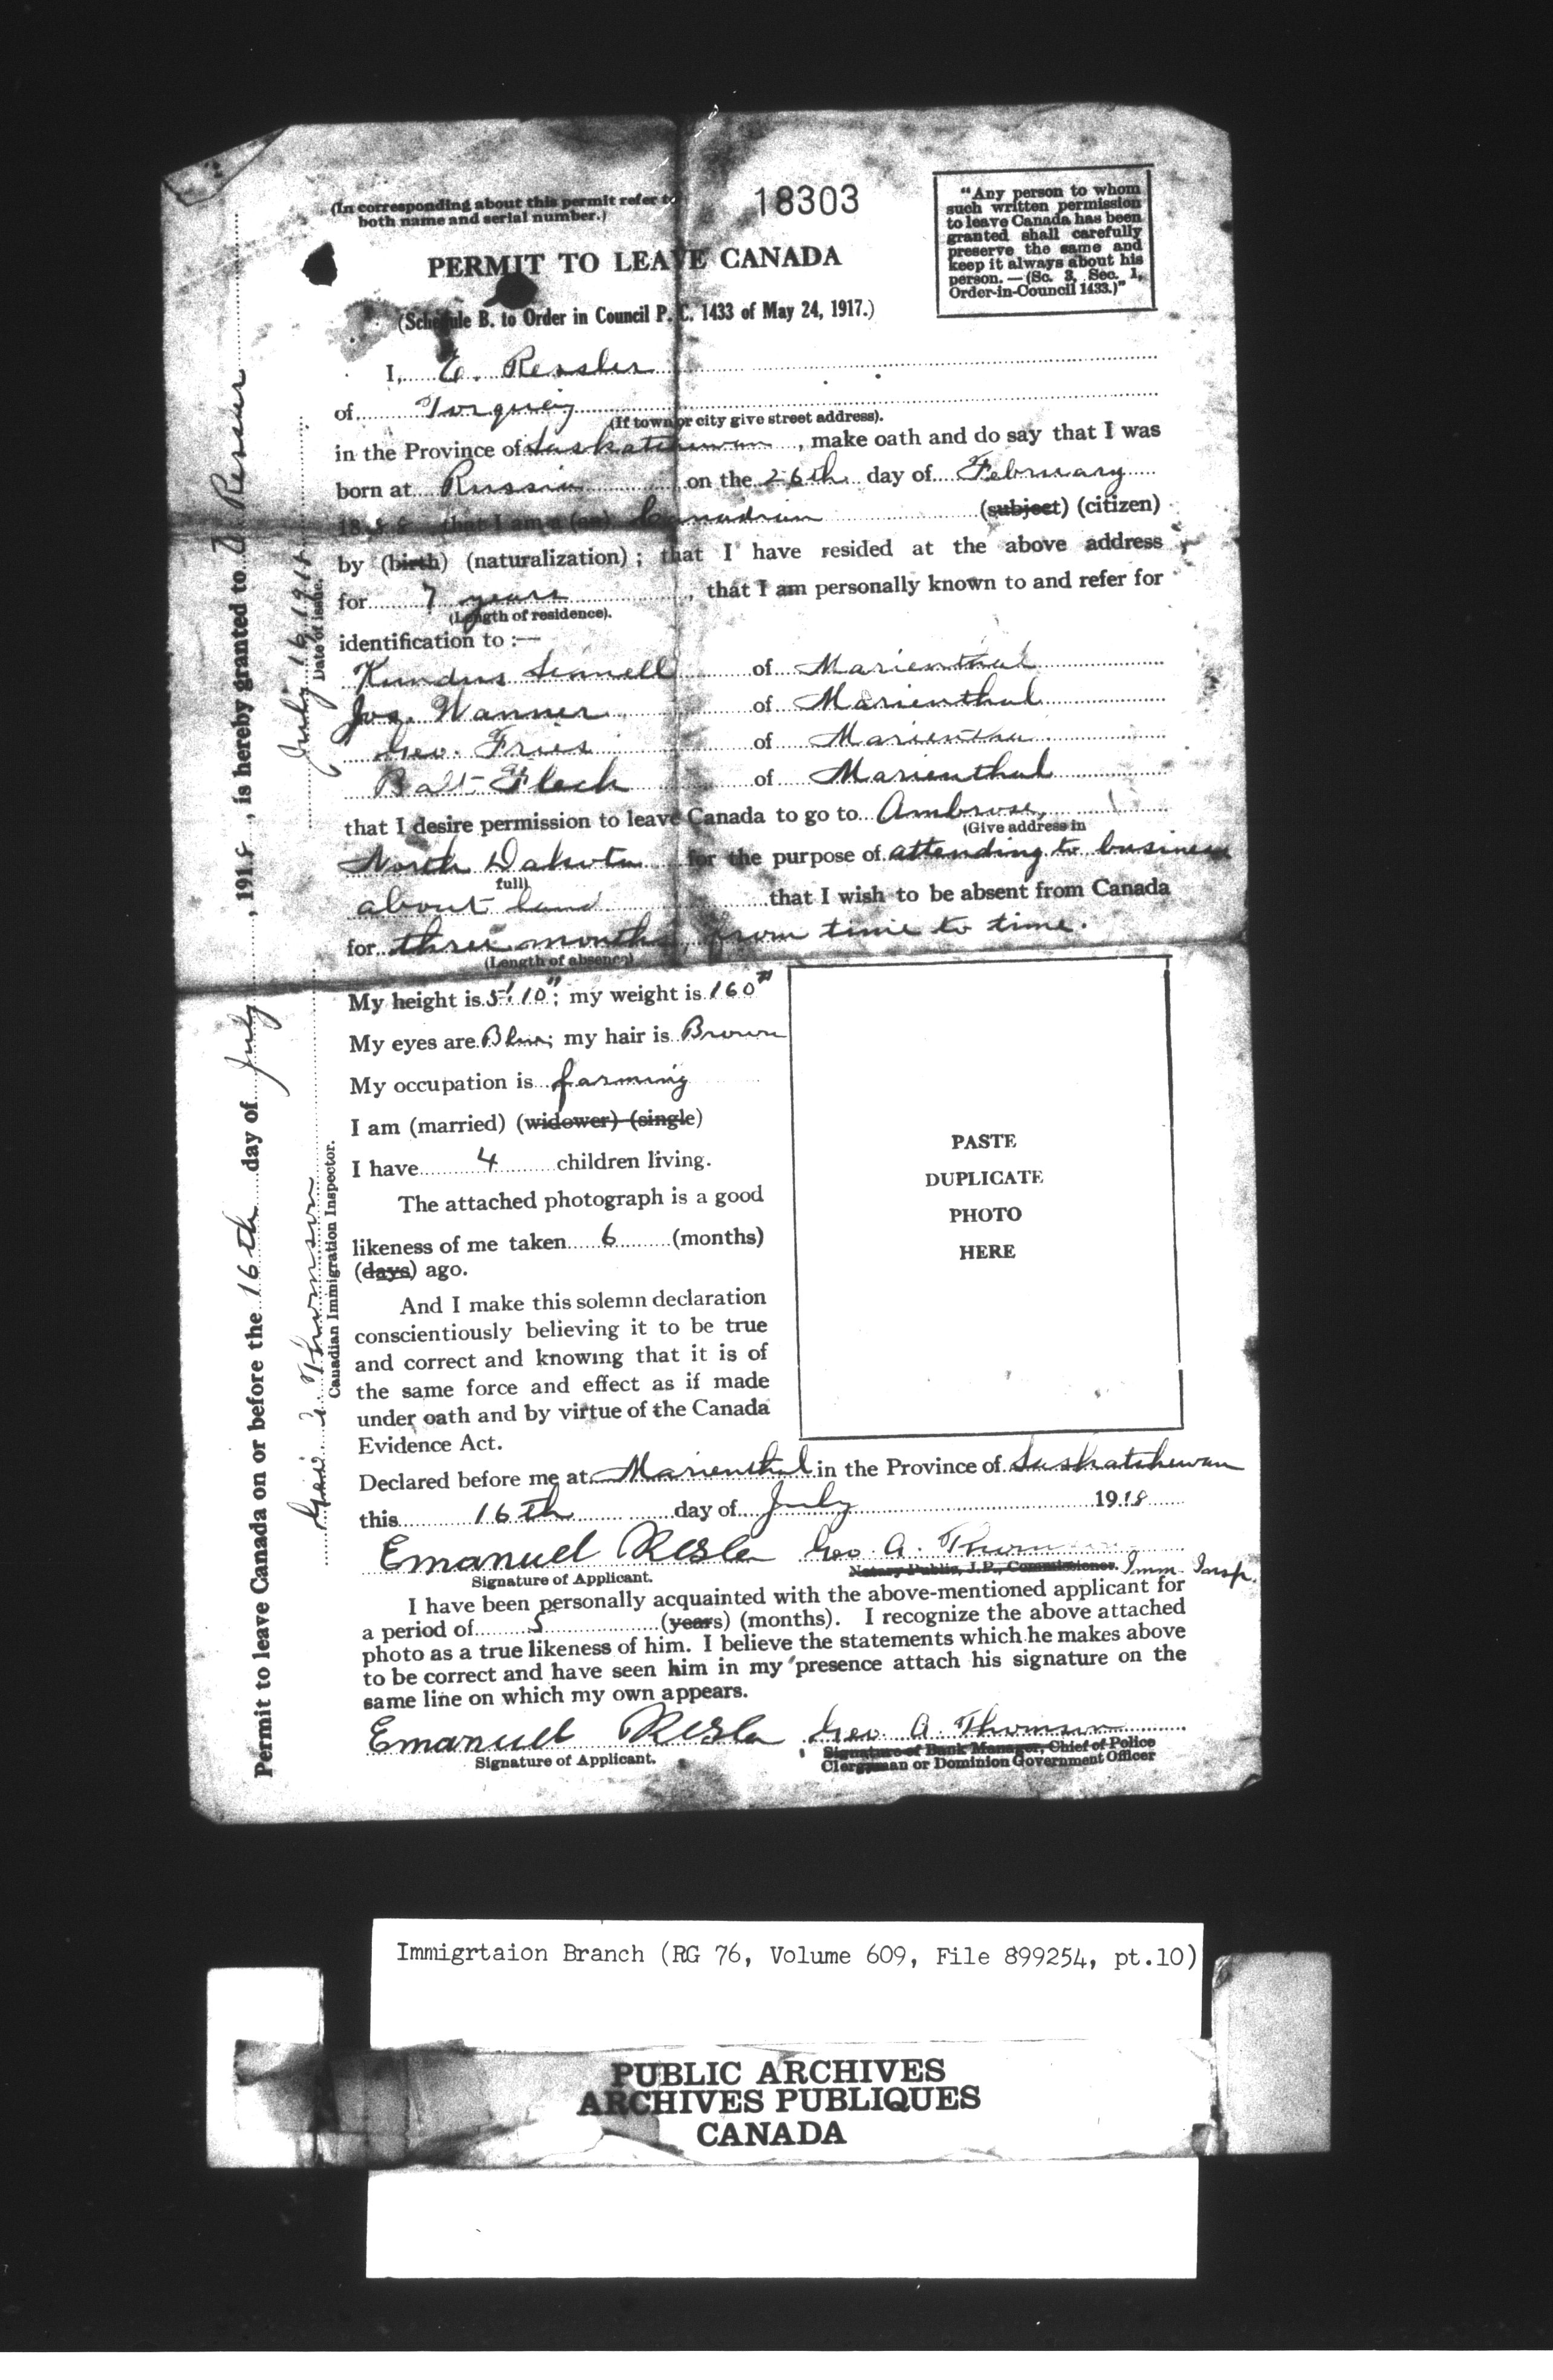 (In corresponding about this permit refer to
both name and serial number.)
18303
"Any person to whom
such written permission
to leave Canada has been
granted shall carefully
preserve the same and
keep it always about his
person. — (Sc. 3, Sec. 1,
Order-in-Council 1433.)"
PERMIT TO LEAVE CANADA
(Schedule B. to Order in Council P. C. 1433 of May 24, 1917.)
I, E. Ressler
of Torquay
(If town or city give street address).
in the Province of Saskatchewan, make oath and do say that I was
born at Russia on the 26th day of February
1888 that I am a (an) Canadian (subject) (citizen)
by (birth) (naturalization) ; that I have resided at the above address
for 7 years, that I am personally known to and refer for
(Length of residence).
identification to :—
Kundus of Marienthal
Jos. Wanner of Marienthal
Geo. Fries of Marienthal
Balt Fleck of Marienthal
that I desire permission to leave Canada to go to Ambrose,
(Give address in
North Dakota for the purpose of attending to business
full)
about land that I wish to be absent from Canada
for three months, from time to time.
(Length of absence)
My height is 5' 10"; my weight is 160#
My eyes are Blue; my hair is Brown
My occupation is farming
I am (married) (widower) (single)
I have 4 children living.
The attached photograph is a good
likeness of me taken 6 (months)
(days) ago.
And I make this solemn declaration
conscientiously believing it to be true
and correct and knowing that it is of
the same force and effect as if made
under oath and by virtue of the Canada
Evidence Act.
PASTE
DUPLICATE
PHOTO
HERE
Declared before me at Marienthal in the Province of Saskatchewan
this 16th day of July 1918
Emanuel Resler Geo. A. Thomson
Signature of Applicant. Notary Public, J.P., Commissioner. Imm. Insp.
I have been personally acquainted with the above-mentioned applicant for
a period of 5 (years) (months). I recognize the above attached
photo as a true likeness of him. I believe the statements which he makes above
to be correct and have seen him in my presence attach his signature on the
same line on which my own appears.
Emanuel Resler Geo. A. Thomson
Signature of Applicant. Signature of Bank Manager, Chief of Police
Clergyman or Dominion Government Officer
Permit to leave Canada on or before the 16th day of July, 1918, is hereby granted to
Geo. A. Thomson July 16 1918
Canadian Immigration Inspector. Date of issue.
Immigrtaion Branch (RG 76, Volume 609, File 899254, pt.10)
PUBLIC ARCHIVES
ARCHIVES PUBLIQUES
CANADA